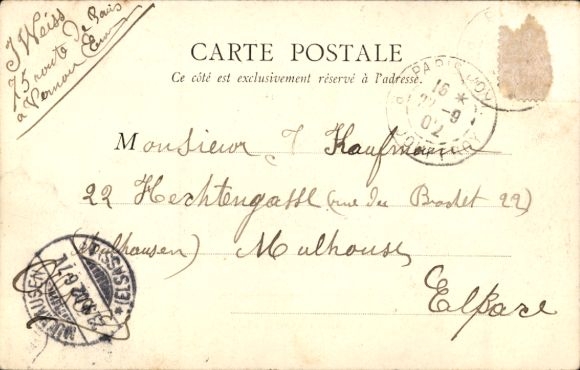 J Weiss
75 route de Paris
à Vernon Eure
CARTE POSTALE
Ce côté est exclusivement réservé à l'adresse.
PARIS
16 *
22 -9
02
Monsieur J Kaufmann
22 Hechtengassl (rue du Brochet 22)
(Mulhausen) Mulhouse
Elsace
MÜLHAUSEN (ELSASS)
23.9.02